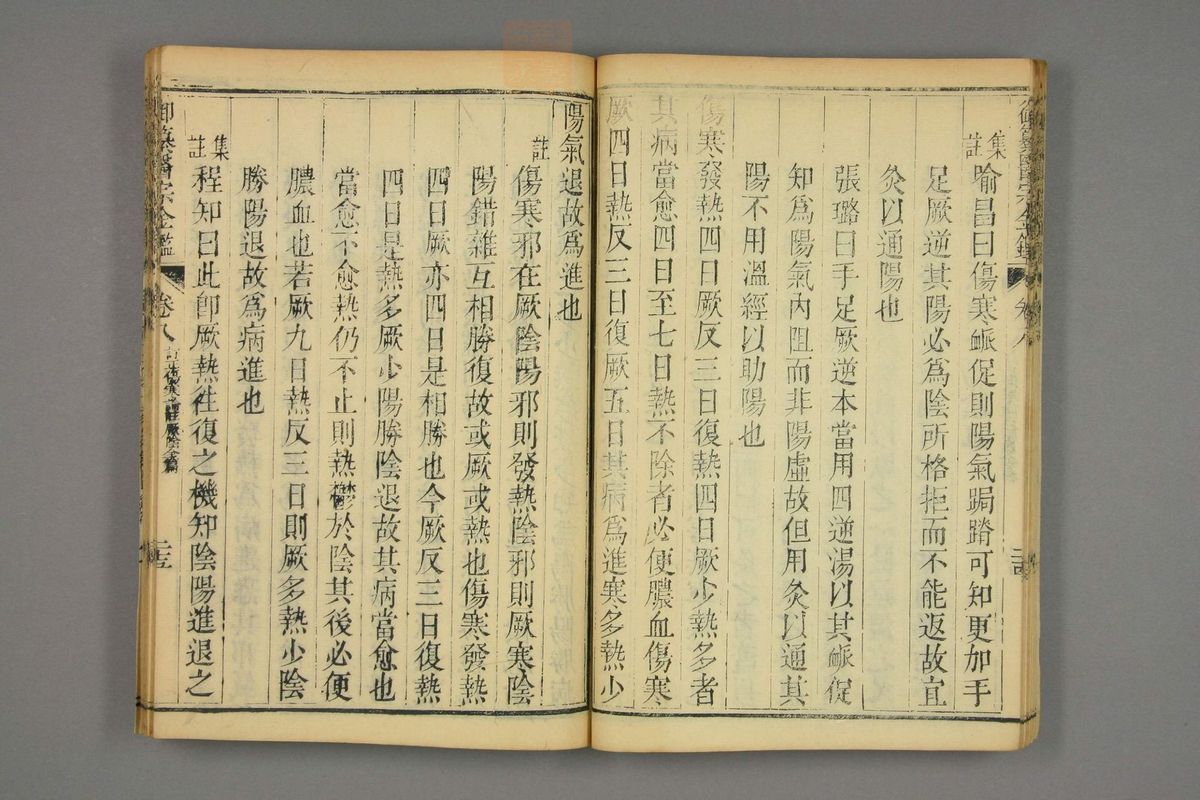 集註 喻昌曰傷寒脈促則陽氣跼蹐可知更加手
足厥逆其陽必爲陰所格拒而不能返故宜
灸以通陽也
張璐曰手足厥逆本當用四逆湯以其脈促
知爲陽氣內阻而非陽虛故但用灸以通其
陽不用溫經以助陽也
傷寒發熱四日厥反三日復熱四日厥少熱多者
其病當愈四日至七日熱不除者必便膿血傷寒
厥四日熱反三日復厥五日其病爲進寒多熱少
陽氣退故爲進也
註 傷寒邪在厥陰陽邪則發熱陰邪則厥寒陰
陽錯雜互相勝復故或厥或熱也傷寒發熱
四日厥亦四日是相勝也今厥反三日復熱
四日是熱多厥少陽勝陰退故其病當愈也
當愈不愈熱仍不止則熱鬱於陰其後必便
膿血也若厥九日熱反三日則厥多熱少陰
勝陽退故爲病進也
集註 程知曰此即厥熱徃復之機知陰陽進退之
御纂醫宗金鑑 卷八 二五
御纂醫宗金鑑 卷八